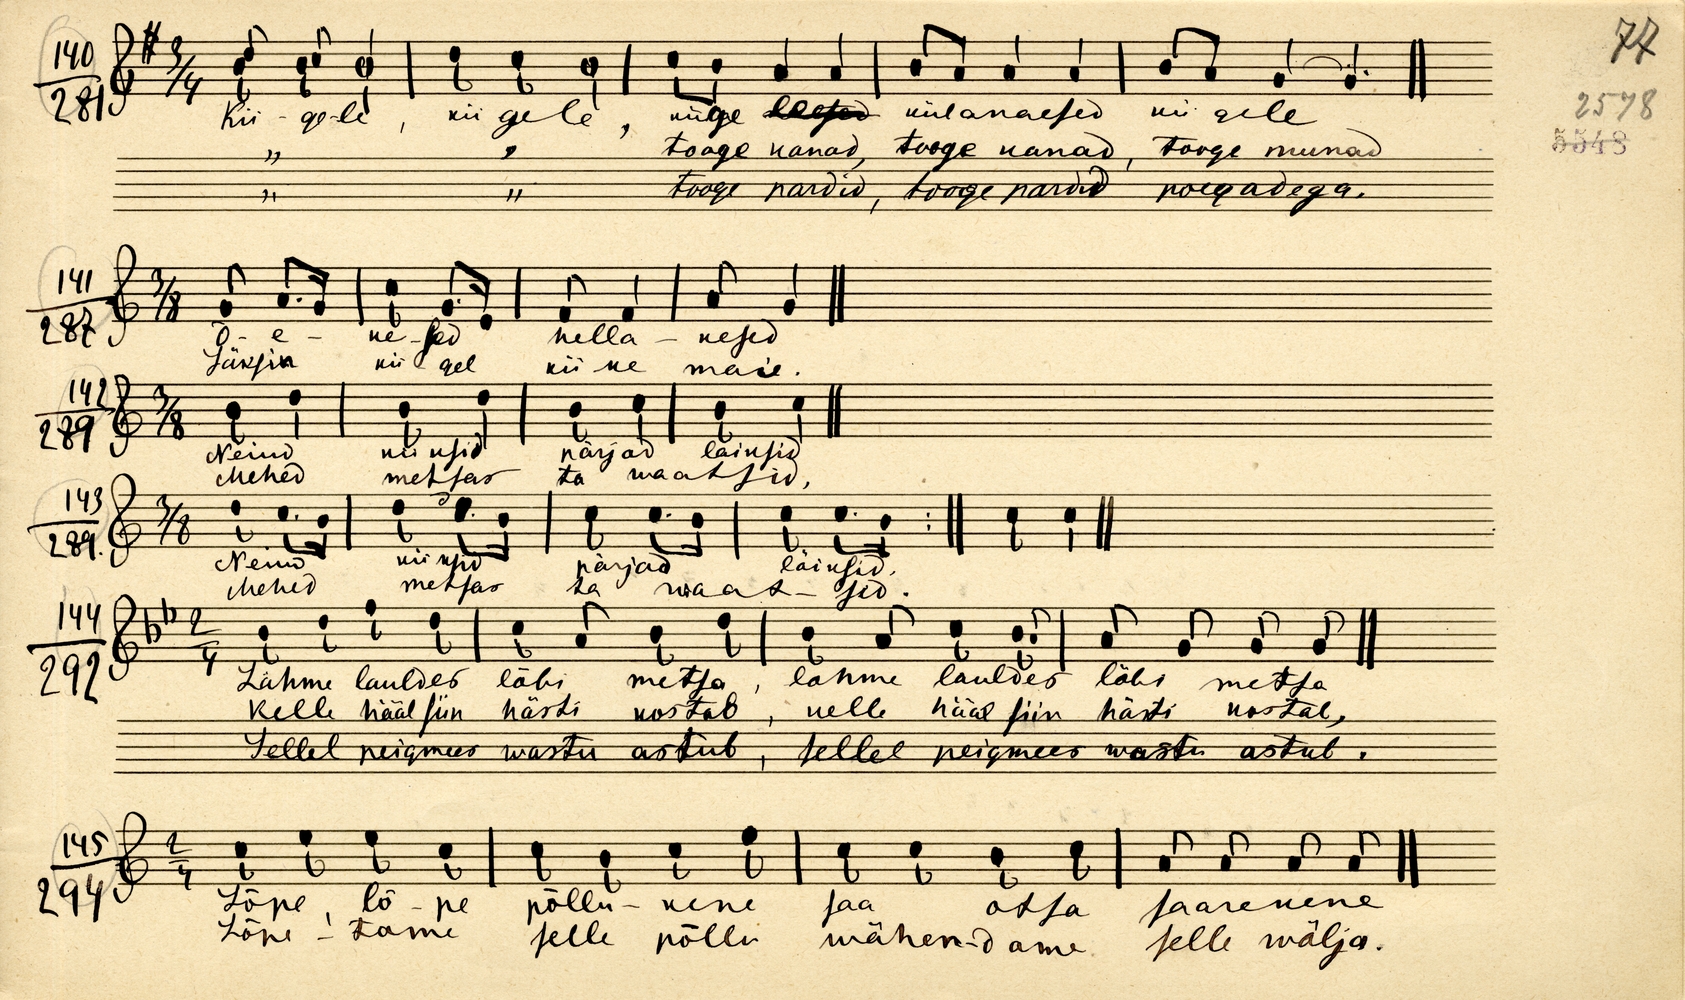 77
2578
5548
140
281
3/4
Kii - ge-le, kii gele, külge leesed külanaesed kii gele
" " tooge kanad, tooge kanad, tooge munad
" " tooge pardid, tooge pardid poegadega.
141
287
3/8
Õ - e - ke-sed hella - kesed
Läksin kii gel kii ke maie.
142
289
3/8
Neiud kiiksid pärjad läiksid
Mehed metsas ta waatsid,
143
289.
3/8
Neiud kiiksid pärjad läiksid,
Mehed metsas ta waat - sid.
144
292
2/4
Lähme lauldes läbi metsa, lähme lauldes läbi metsa
Kelle hääl siin hästi kostab, kelle hääl siin hästi kostab,
Sellel peigmees wastu astub, sellel peigmees wastu astub.
145
294
2/4
Lõpe, lõ - pe põllu - kene saa otsa saarekene
Lõpe - tame selle põllu wähen-dame selle wälja.